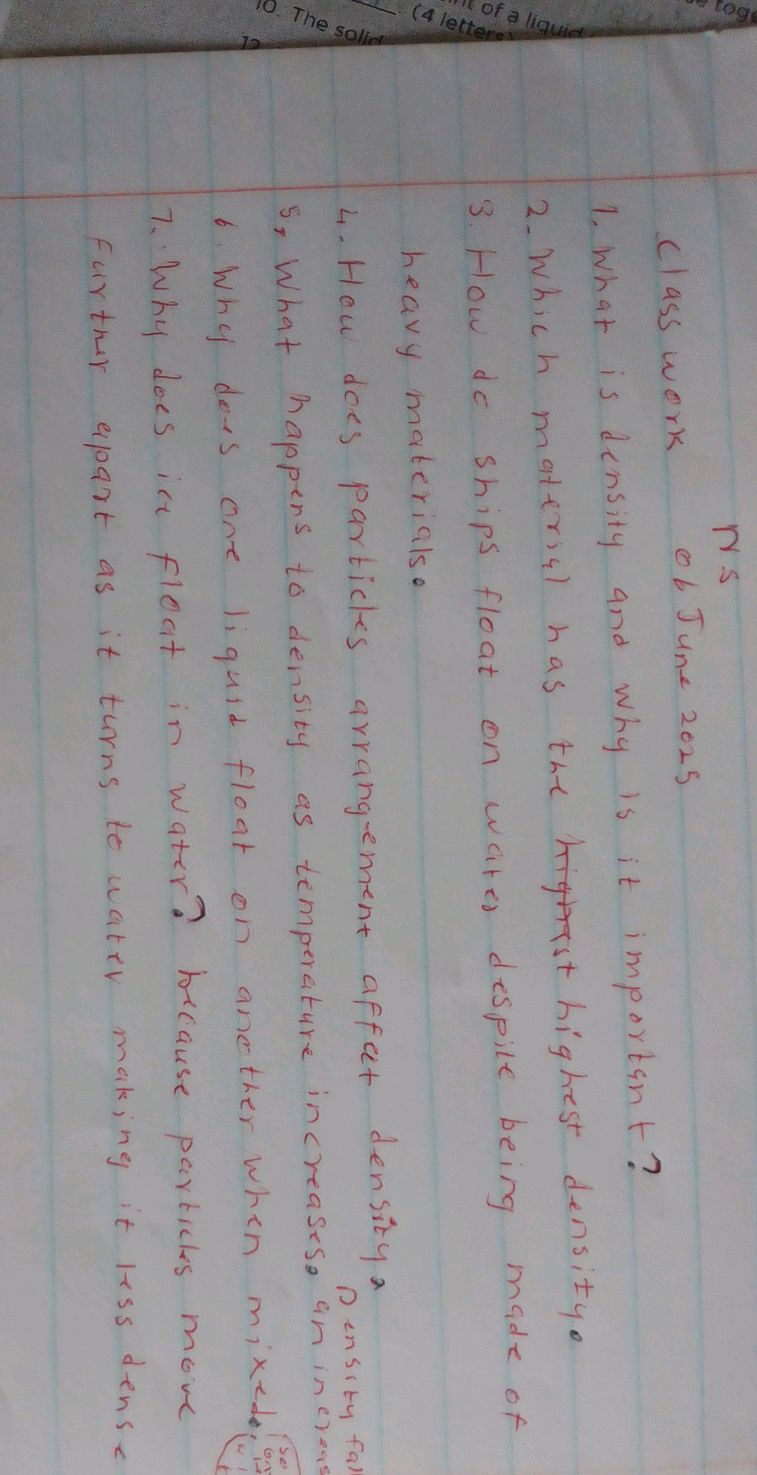 10. The solid
(4 letters)
of a liquid
12
NS
Classwork 06 June 2025
1. What is density and why is it important?
2. Which material has the highest highest density.
3. How do ships float on water despite being made of
heavy materials.
4. How does particles arrangement affect density.
Density fal
5. What happens to density as temperature increases. an increas
6. Why does one liquid float on another when mixed.
7. Why does ice float in water? because particles move
further apart as it turns to water making it less dense